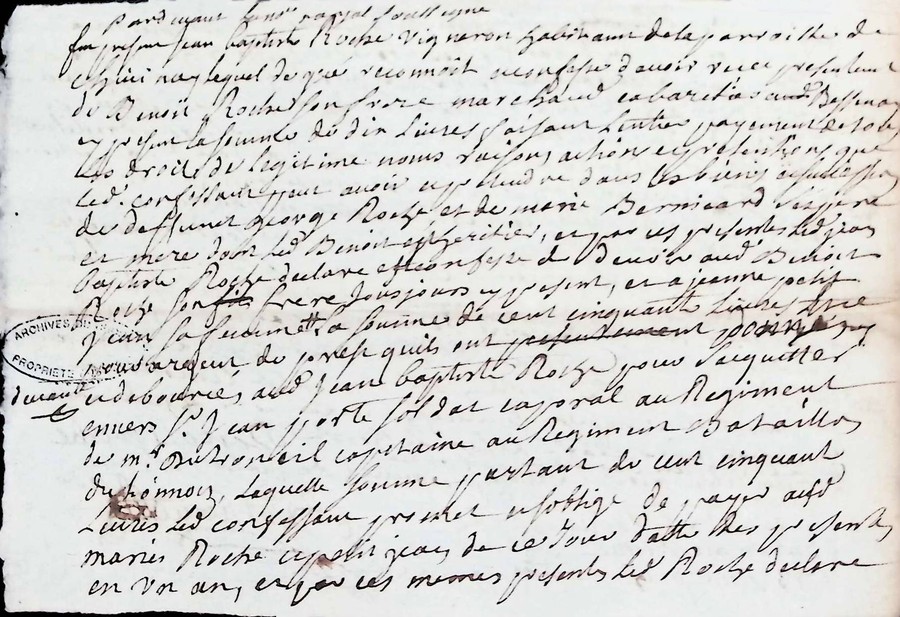 Pardevant le no^re royal soussigne
fut present Jean baptiste Roche vigneron habitant de la parroisse de
lequel de gré reconnoit et confesse davoir receu presentement
de Benoit Roche son frere marchand cabaretier a Bessenay
cy present la somme de dix livres faisant lentier payement de tous
les droits de legitime noms raisons, actions et pretentions que
led. confessant peut avoir et pretendre dans les biens et succession
de deffunct George Roche et de marie Bernicard ses pere
et mere dont led Benoit est heritier, et par ces presentes led jean
baptiste Roche declare et confesse de devoir aud Benoit
Roche son frere tousjours cy present, et a jeanne petit
jean sa femme la somme de cent cinquante livres
argent de prest quils ont presentement
et debourcée aud jean baptiste Roche pour sacquitter
envers S^r. Jean porte soldat caporal au Regiment
de m^r. Dutroncil capitaine au Regiment Bataillon
du lionnois, laquelle somme partant de cent cinquant
Livres led confessant promet et soblige de payer ausd
mariés Roche et petit jean, de ce jour datte des presentes
en un an, et par ces memes presentes led Roche declare
ARCHIVES
PROPRIETE